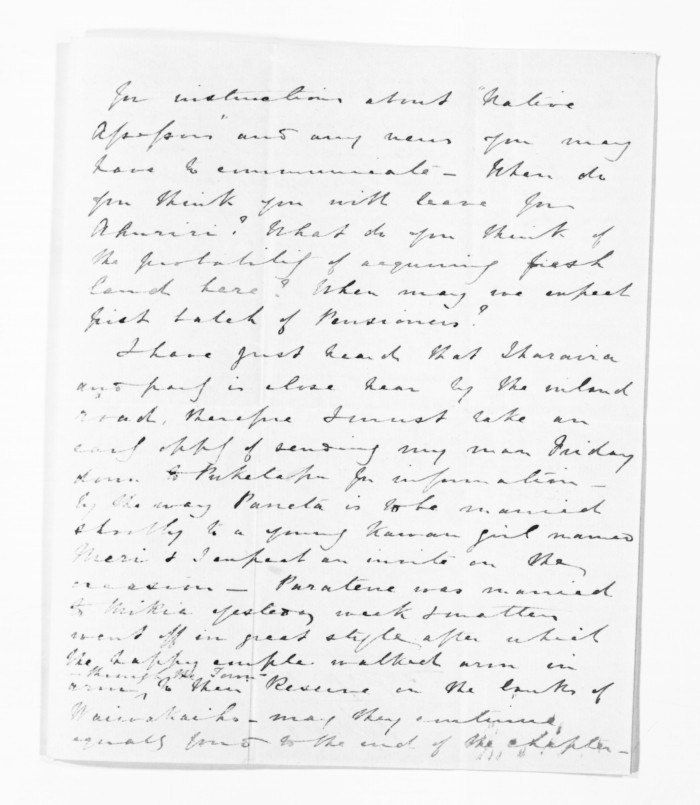 for instructions about "Native
Assessors" and any news you may
have to communicate - When do
you think you will leave for
Ahuriri? What do you think of
the probability of acquiring fresh
land here? When may we expect
first batch of Pensioners?
I have just heard that Iharaira
and party is close near by the inland
road, therefore I must take an
early oppy of sending my man Friday
down to Puketapu for information -
by the way Paneta is to be married
shortly to a young Kawau girl named
Meri & I expect an invite on the
occasion - Paratene was married
to Mikia yesterday week & matters
went off in great style, after which
the happy couple walked arm in
through the Town
arm, to their Reserve on the banks of
Waiwakaiho - may they continue
equally fond to the end of the chapter -